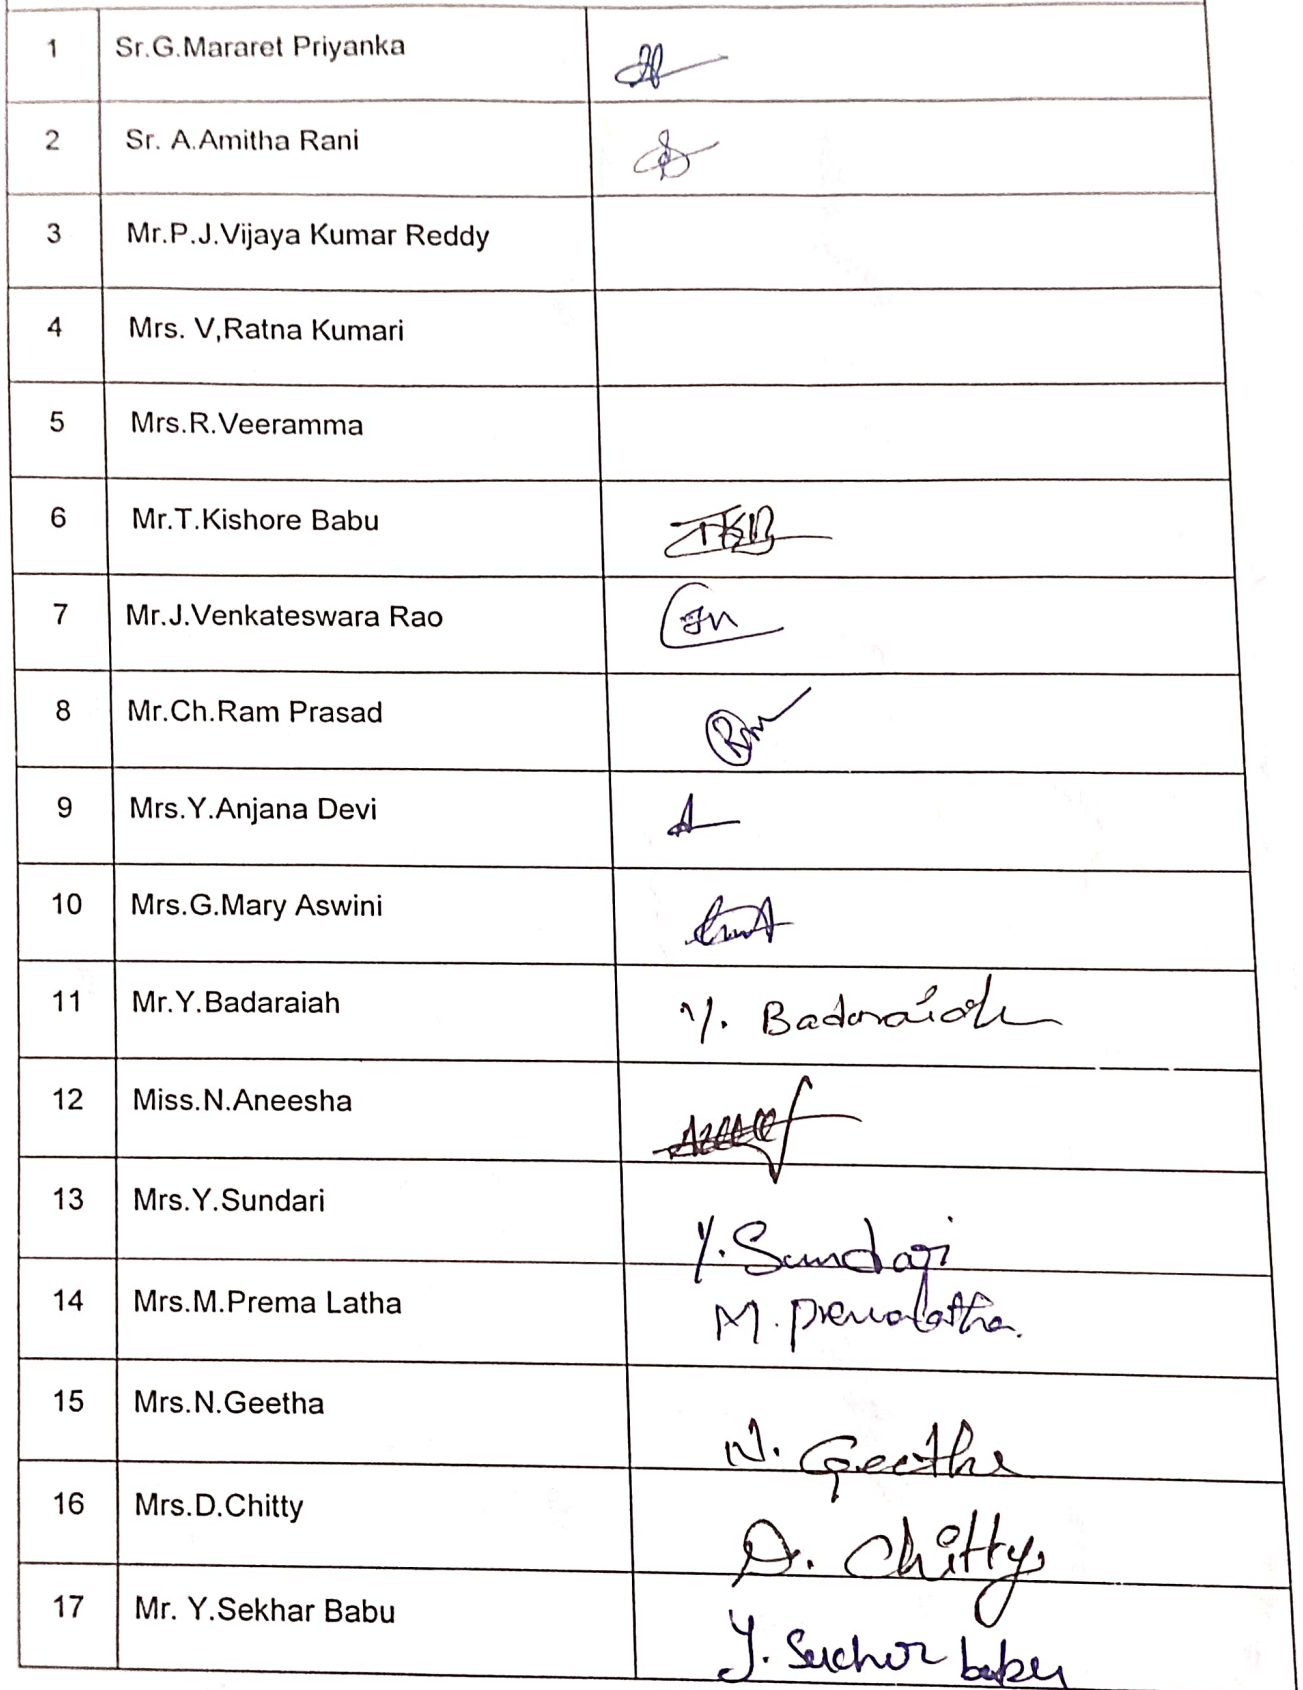 1 Sr.G.Mararet Priyanka
2 Sr. A.Amitha Rani
3 Mr.P.J.Vijaya Kumar Reddy
4 Mrs. V,Ratna Kumari
5 Mrs.R.Veeramma
6 Mr.T.Kishore Babu TKB
7 Mr.J.Venkateswara Rao
8 Mr.Ch.Ram Prasad
9 Mrs.Y.Anjana Devi
10 Mrs.G.Mary Aswini
11 Mr.Y.Badaraiah Y. Badaraiah
12 Miss.N.Aneesha
13 Mrs.Y.Sundari Y. Sundari
14 Mrs.M.Prema Latha M. Premalatha.
15 Mrs.N.Geetha N. Geetha
16 Mrs.D.Chitty D. Chitty
17 Mr. Y.Sekhar Babu Y. babu